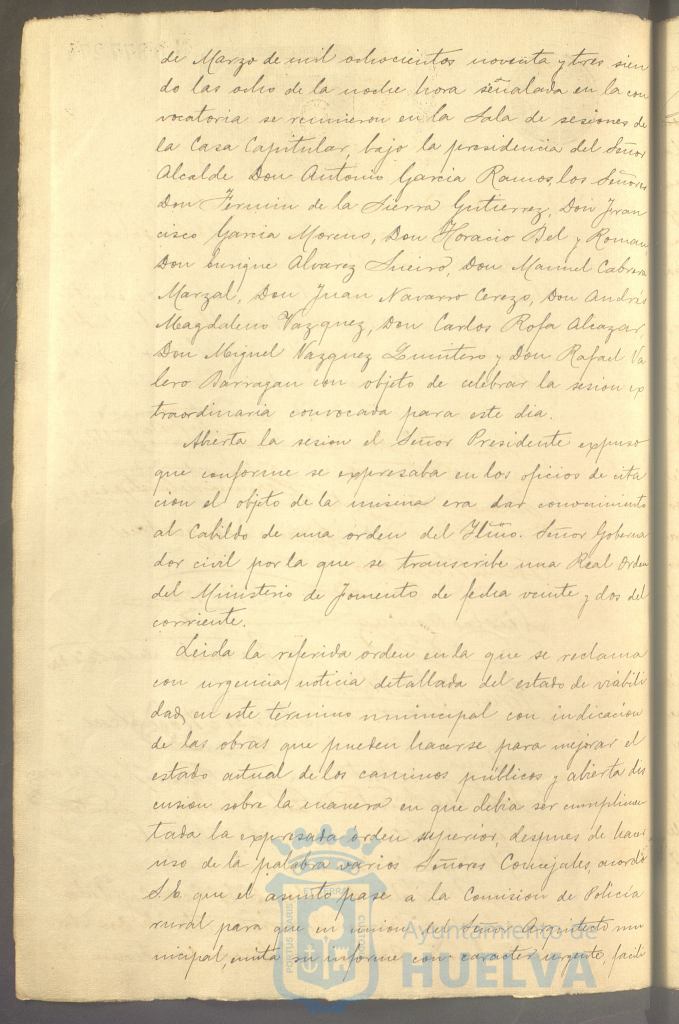 de Marzo de mil ochocientos noventa y tres sien
do las ocho de la noche hora señalada en la con
vocatoria se reunieron en la Sala de sesiones de
la Casa Capitular, bajo la presidencia del Señor
Alcalde Don Antonio Garcia Ramos, los Señores
Don Fermin de la Sierra Gutierrez, Don Fran
cisco Garcia Moreno, Don Horacio Bel y Roman
Don Enrique Alvarez Sueiro, Don Manuel Cabrera
Marzal, Don Juan Navarro Cerezo, Don Andrés
Magdaleno Vazquez, Don Carlos Rofa Alcazar,
Don Miguel Vazquez Quintero y Don Rafael Va
lero Barragan con objeto de celebrar la sesion ex
traordinaria convocada para este dia.
Abierta la sesion el Señor Presidente expuso
que conforme se expresaba en los oficios de cita
cion el objeto de la misma era dar conocimiento
al Cabildo de una orden del Yltmo. Señor Goberna
dor civil por la que se transcribe una Real Orden
del Ministerio de Fomento de fecha veinte y dos del
corriente.
Leida la referida orden en la que se reclama
con urgencia noticia detallada del estado de viabili
dad, en este término municipal con indicacion
de las obras que pueden hacerse para mejorar el
estado actual de los caminos públicos y abierta dis
cusion sobre la manera en que debia ser cumplimen
tada la expresada orden superior, despues de hacer
uso de la palabra varios Señores Concejales, acordó
S.E. que el asunto pase a la Comision de Policia
rural para que en union del Señor Arquitecto mu
nicipal, emita su informe con caracter urgente, facili
PORTUS MARIS ET TERRE CUSTODIA
Ayuntamiento de
HUELVA